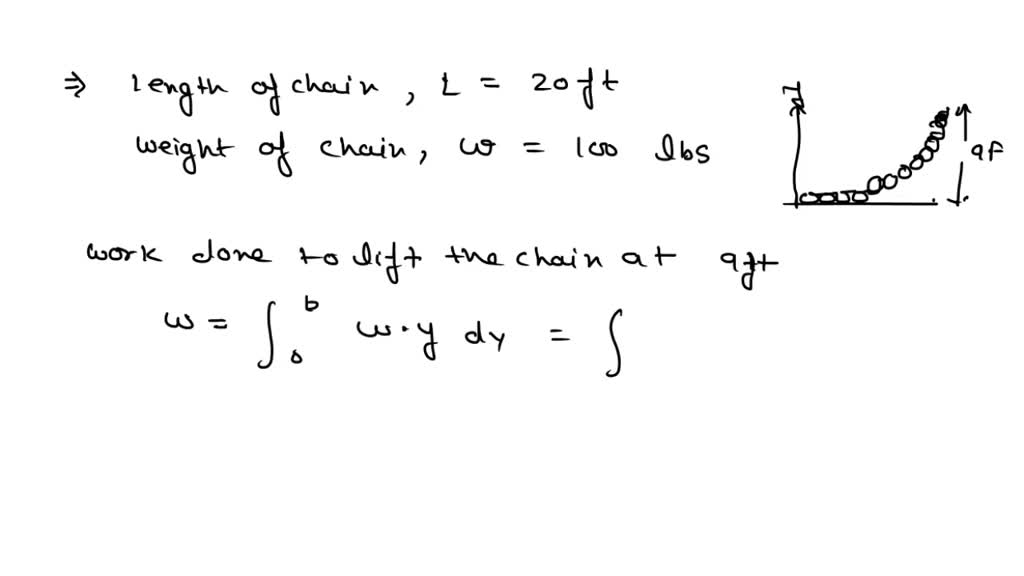 ⇒ Length of chain, L = 20ft
weight of chain, w = 100 lbs
y
9f
work done to lift the chain at 9ft
w = ∫₀ᵇ w·y dy = ∫